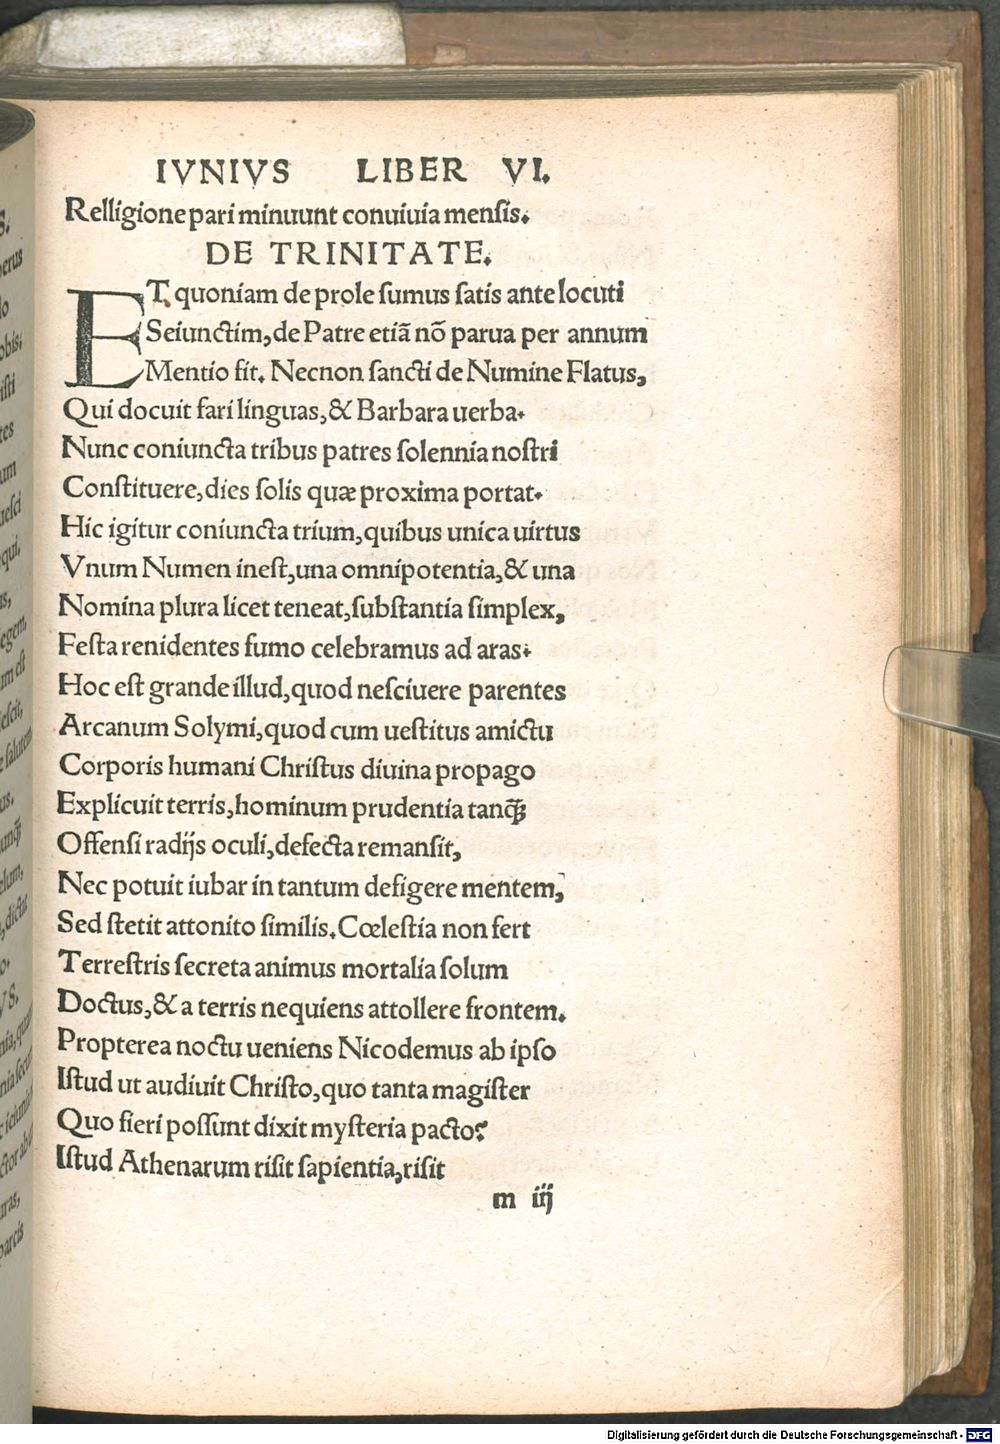 IVNIVS LIBER VI.
Relligione pari minuunt conuiuia mensis.
DE TRINITATE.
ET quoniam de prole sumus satis ante locuti
Seiunctim, de Patre etiã nõ parua per annum
Mentio fit. Necnon sancti de Numine Flatus,
Qui docuit fari linguas, & Barbara uerba.
Nunc coniuncta tribus patres solennia nostri
Constituere, dies solis quæ proxima portat.
Hic igitur coniuncta trium, quibus unica uirtus
Vnum Numen inest, una omnipotentia, & una
Nomina plura licet teneat, substantia simplex,
Festa renidentes fumo celebramus ad aras.
Hoc est grande illud, quod nesciuere parentes
Arcanum Solymi, quod cum uestitus amictu
Corporis humani Christus diuina propago
Explicuit terris, hominum prudentia tanꝗ̃
Offensi radijs oculi, defecta remansit,
Nec potuit iubar in tantum defigere mentem,
Sed stetit attonito similis. Cœlestia non fert
Terrestris secreta animus mortalia solum
Doctus, & a terris nequiens attollere frontem.
Propterea noctu ueniens Nicodemus ab ipso
Istud ut audiuit Christo, quo tanta magister
Quo fieri possunt dixit mysteria pacto?
Istud Athenarum risit sapientia, risit
m iij
Digitalisierung gefördert durch die Deutsche Forschungsgemeinschaft - DFG